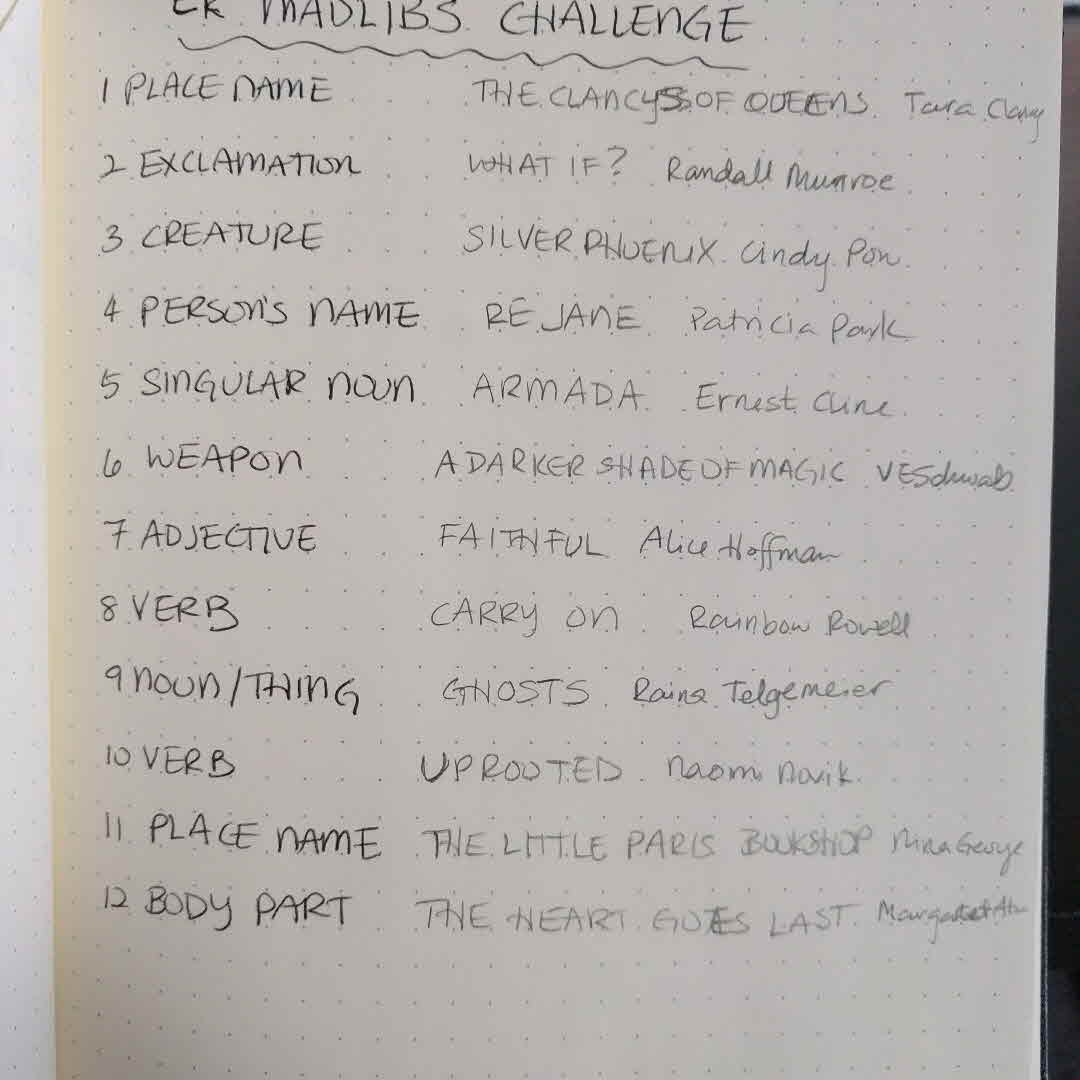 ER MADLIBS CHALLENGE
1 PLACE NAME THE CLANCYS OF QUEENS Tara Clancy
2 EXCLAMATION WHAT IF? Randall Munroe
3 CREATURE SILVER PHOENIX Cindy Pon
4 PERSON'S NAME RE JANE Patricia Park
5 SINGULAR NOUN ARMADA Ernest Cline
6 WEAPON A DARKER SHADE OF MAGIC VE Schwab
7 ADJECTIVE FAITHFUL Alice Hoffman
8 VERB CARRY ON Rainbow Rowell
9 NOUN/THING GHOSTS Raina Telgemeier
10 VERB UPROOTED Naomi Novik
11 PLACE NAME THE LITTLE PARIS BOOKSHOP Nina George
12 BODY PART THE HEART GOES LAST Margaret